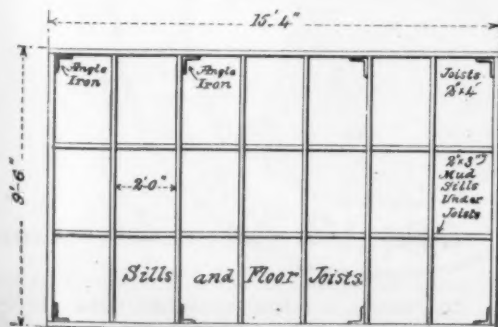 15'4"
Angle
Iron
Angle
Iron
Joists
2"x4"
9'-6"
2'-0"
2"x3"
Mud
Sills
Under
Joists
Sills and Floor Joists